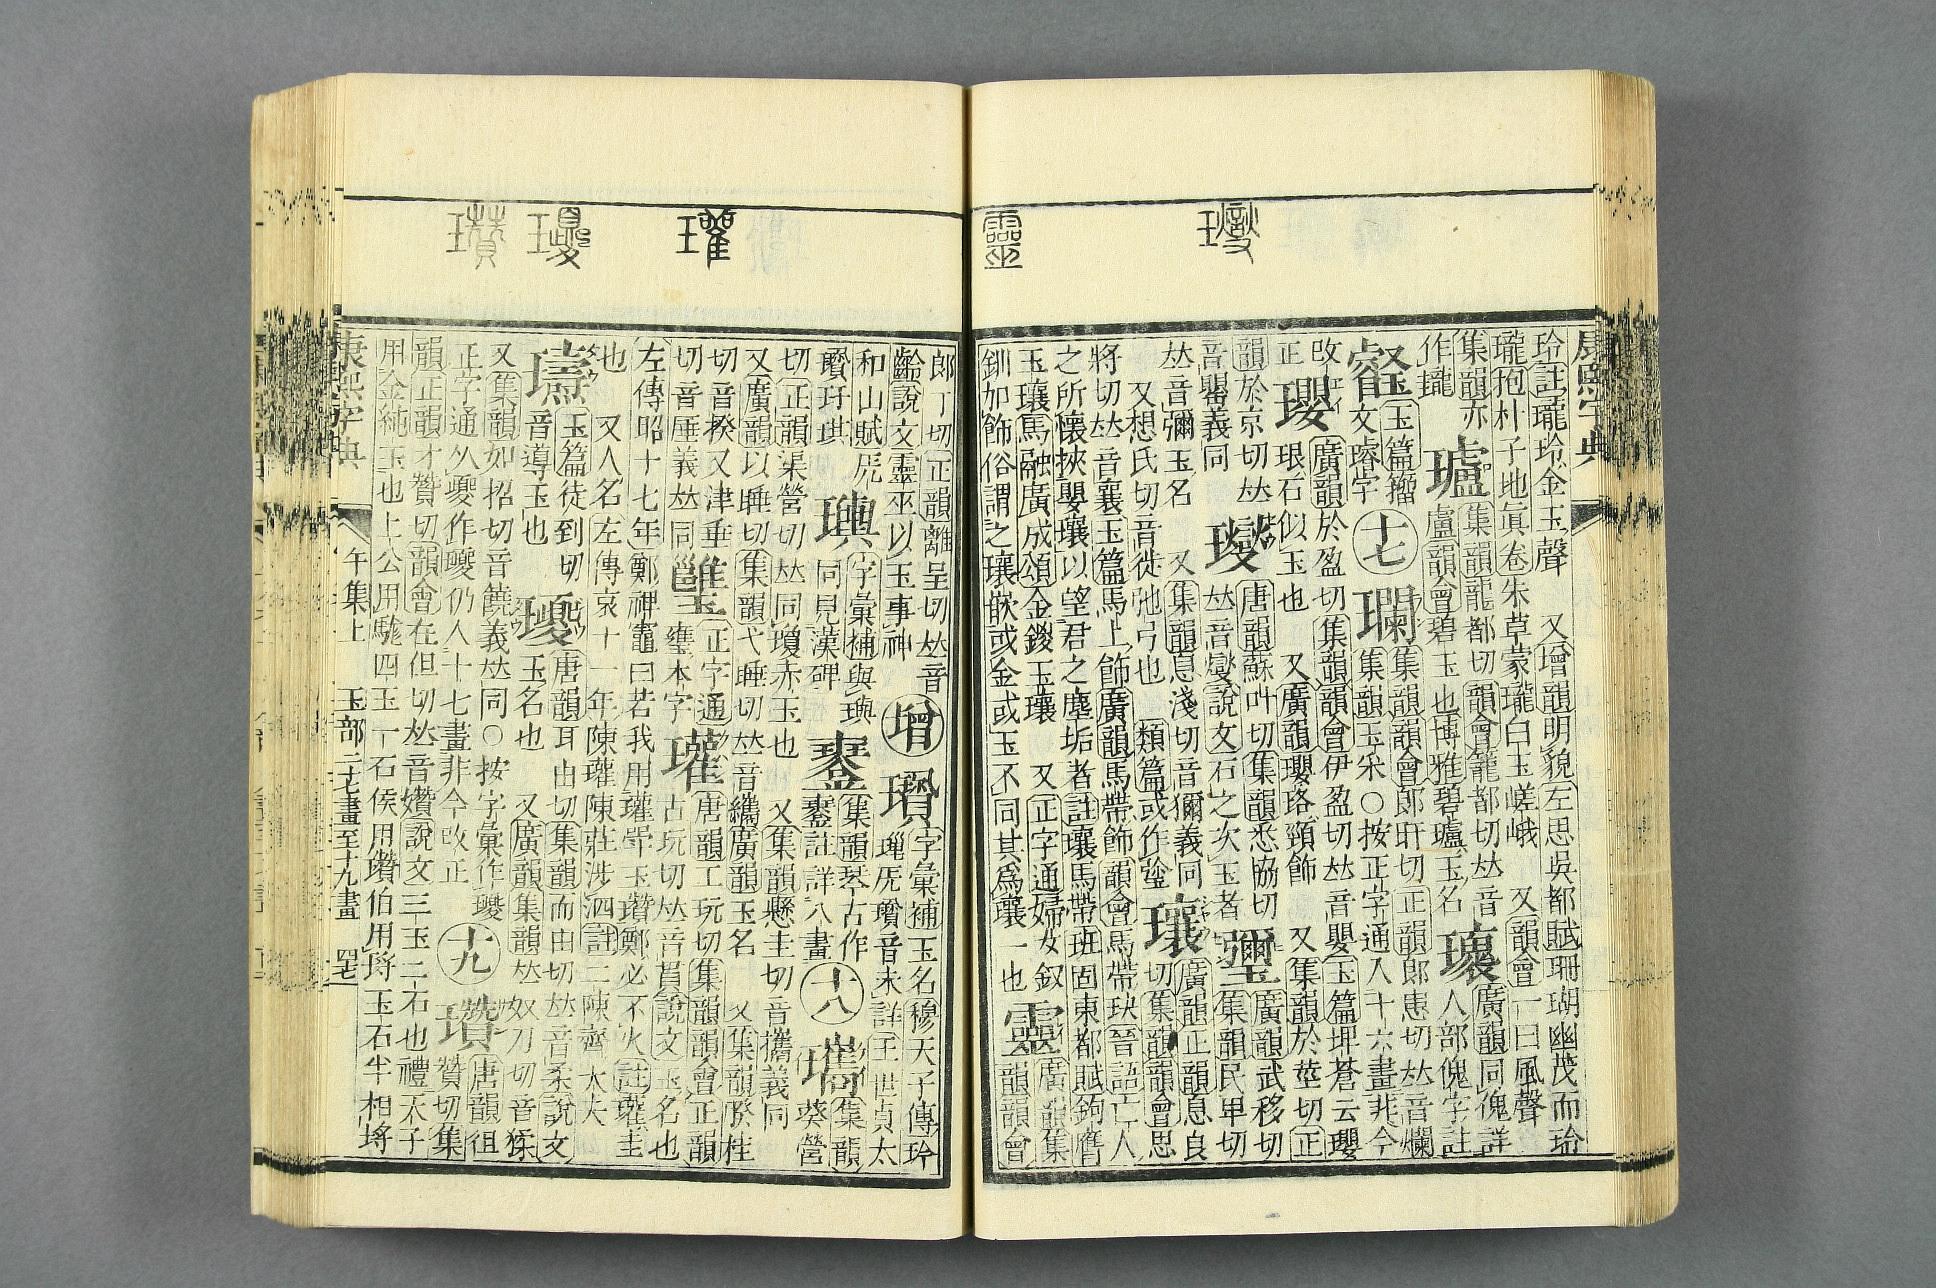 康熙字典
玲註瓏玲金玉聲 又增韻明貌左思吳都賦珊瑚幽茂而玲
瓏抱朴子地眞卷朱草蒙瓏白玉嵯峨 又韻會一曰風聲
集韻亦作㼅 瓐 集韻龍都切韻會籠都切𠀤音盧韻會碧玉也博雅碧瓐玉名 瓌 廣韻同傀詳人部傀字註
璿 玉篇籀文睿字 十七 瓓 集韻韻會郎旰切正韻郎患切𠀤音爛集韻玉采○按正字通入十六畫非今改正
瓔 廣韻於盈切集韻韻會伊盈切𠀤音嬰玉篇埤蒼云瓔琅石似玉也 又廣韻瓔珞頸飾 又集韻於莖切正韻於京切𠀤音罌義同
㻴 唐韻蘇叶切集韻悉協切𠀤音燮說文石之次玉者 瓕 廣韻武移切集韻民𤰞切𠀤音彌玉名 又集韻息淺切音獮義同
又想氏切音徙弛弓也 類篇或作壐 瓖 廣韻正韻息良切集韻韻會思將切𠀤音襄玉篇馬上飾廣韻馬帶飾韻會馬帶玦晉語亡人
之所懷挾嬰瓖以望君之塵垢者註瓖馬帶班固東都賦鉤膺
玉瓖馬融廣成頌金鍐玉瓖 又正字通婦女釵
釧加飾俗謂之瓖嵌或金或玉不同其爲瓖一也 靈 廣韻集韻韻會
郎丁切正韻離呈切𠀤音
齡說文靈巫以玉事神 增 瓉 字彙補玉名穆天子傳玲瓏㻁瓉音未詳王世貞太
和山賦㻁瓉玗琪 璵 字彙補與璵同見漢碑 集韻琴古作註詳八畫 十八 瓗 集韻葵營
切正韻渠營切𠀤同瓊赤玉也 又集韻懸圭切音攜義同
又廣韻以睡切集韻弋睡切𠀤音纗廣韻玉名 又集韻睽桂
切音揆又津垂切音厜義𠀤同 正字通璽本字 瓘 唐韻工玩切集韻韻會正韻古玩切𠀤音貫說文玉名也
左傳昭十七年鄭裨竈曰若我用瓘斝玉瓚鄭必不火註瓘圭
也 又人名左傳哀十一年陳瓘陳莊涉泗註二陳齊大夫
玉篇徒到切音導玉也 瓇 唐韻耳由切集韻而由切𠀤音柔說文玉名也 又廣韻集韻𠀤奴刀切音猱
又集韻如招切音饒義𠀤同○按字彙作
正字通从夒作仍入十七畫非今改正 十九 瓚 唐韻徂贊切集
韻正韻才贊切韻會在但切𠀤音㜺說文三玉二石也禮天子
用金純玉也上公用駹四玉一石侯用瓚伯用埒玉石半相埒
康熙字典 午集上 玉部 十七畫至十九畫